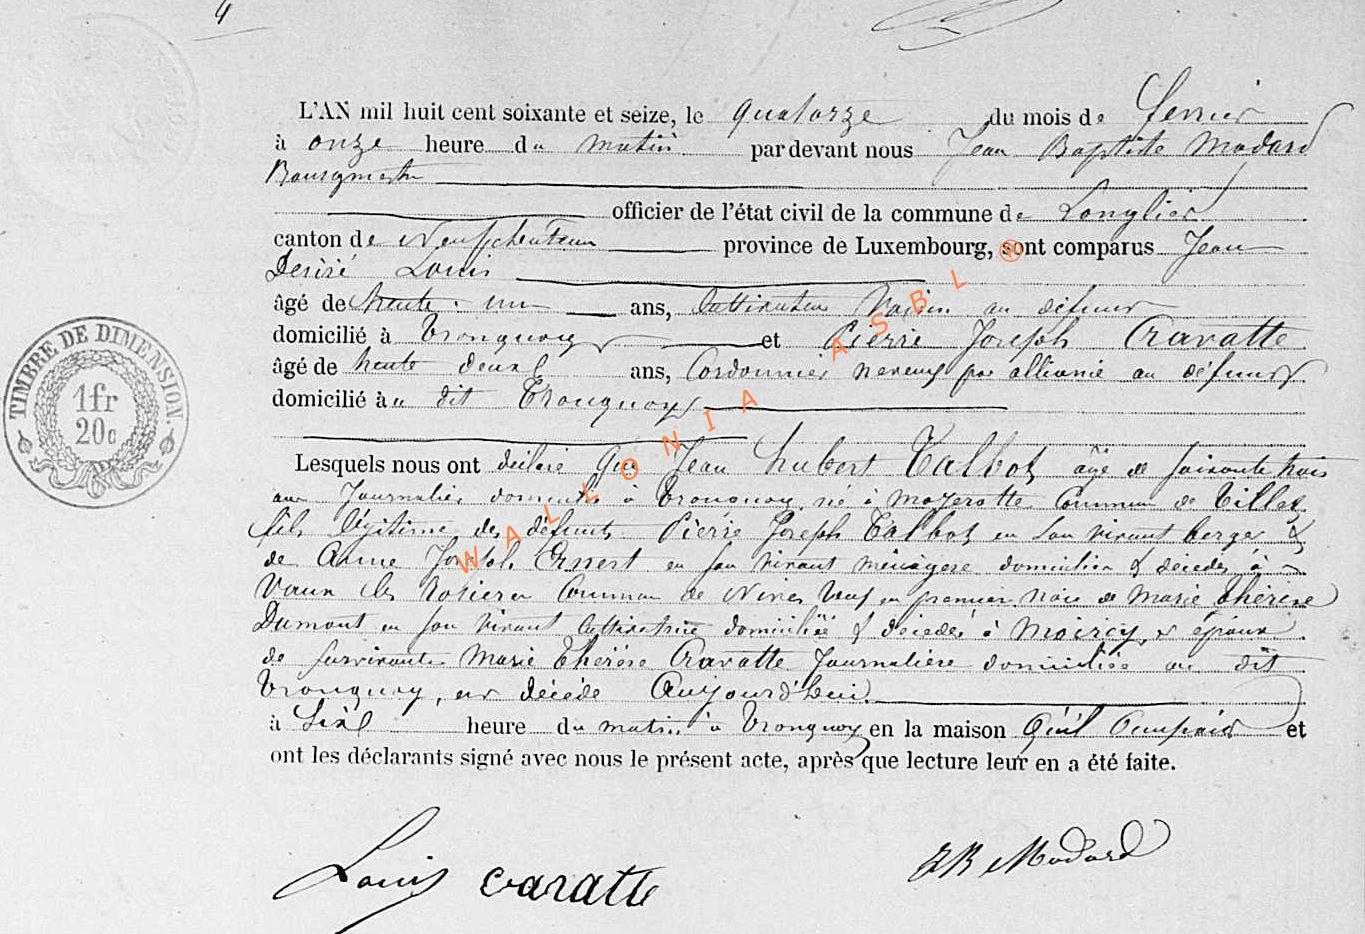 4
L'AN mil huit cent soixante et seize, le quatorze du mois de Fevrier
à onze heure du matin par devant nous Jean Baptiste Modard
Bourgmestre
officier de l'état civil de la commune de Longlier
canton de Neufchateau province de Luxembourg, sont comparus Jean
Desiré Louis
âgé de trente-un ans, Cultivateur Voisin au défunt
domicilié à Tronquoy et Pierre Joseph Cravatte
âgé de trente deux ans, Cordonnier neveux par alliance au défunt
domicilié au dit Tronquoy
Lesquels nous ont déclaré que Jean hubert Talbot âgé de soixante trois
ans Journalier domicilié à Tronquoy né à Moyerotte Commune de Tillet
fils légitime des défunts Pierre Joseph Talbot en son vivant berger &
de Anne Joseph Ernest en son vivant ménagère domiciliés & décédés à
Vaux les Rosieres Commune de Nives Veuf en premier noce de Marie Thérèse
Dumont en son vivant cultivatrice domiciliée & décédée à Moircy, & époux
de survivante Marie Thérése Cravatte Journalière domiciliée au dit
Tronquoy, est décédé Aujourd'hui
à Six heure du matin à Tronquoy en la maison Qu'il Occupait et
ont les déclarants signé avec nous le présent acte, après que lecture leur en a été faite.
Louis Cravatte JB Modard
TIMBRE DE DIMENSION.
1fr
20c
WALLONIA ASBL ®